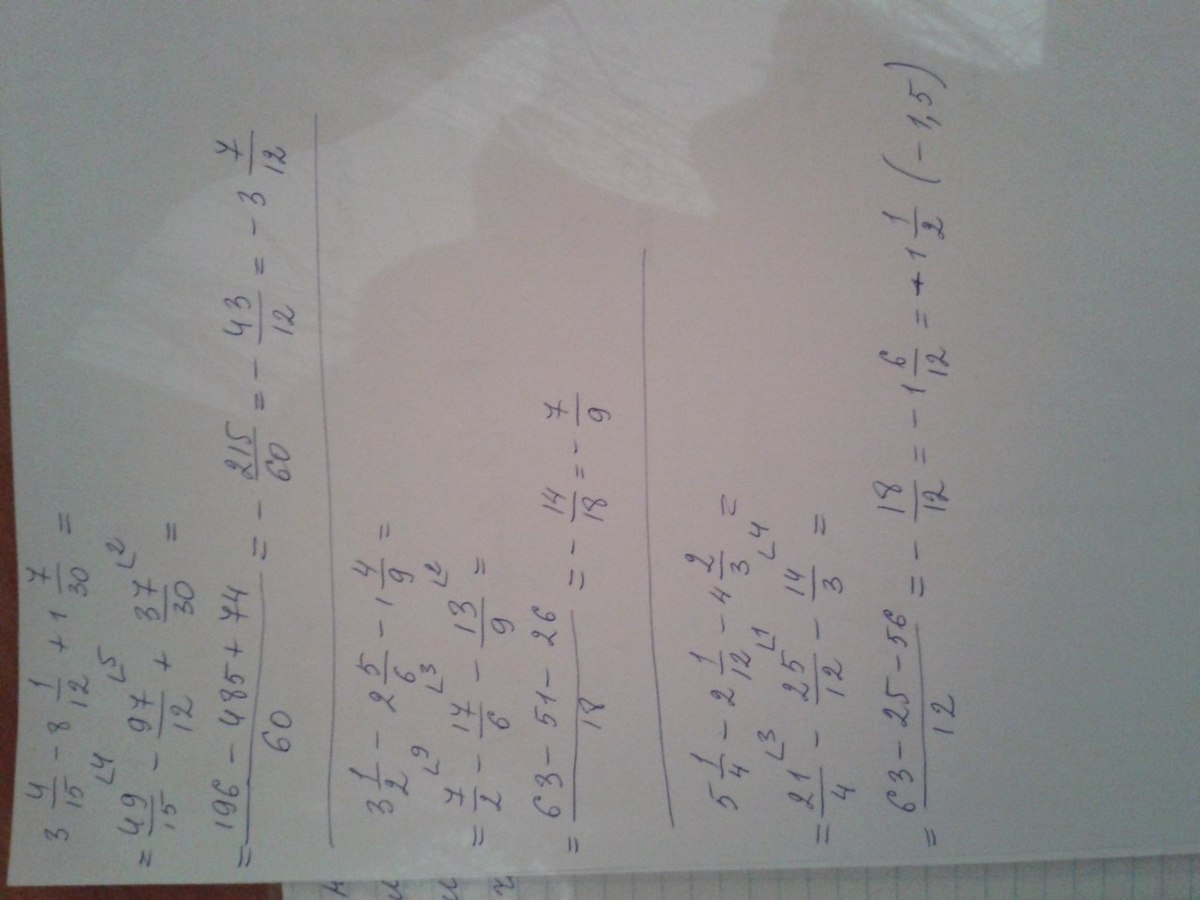 3 4/15 − 8 1/12 + 1 7/30 =
= 49/15 ∟4 − 97/12 ∟5 + 37/30 ∟2 =
= (196 − 485 + 74)/60 = − 215/60 = − 43/12 = − 3 7/12
3 1/2 − 2 5/6 − 1 4/9 =
= 7/2 ∟9 − 17/6 ∟3 − 13/9 ∟2 =
= (63 − 51 − 26)/18 = − 14/18 = − 7/9
5 1/4 − 2 1/12 − 4 2/3 =
= 21/4 ∟3 − 25/12 ∟1 − 14/3 ∟4 =
= (63 − 25 − 56)/12 = − 18/12 = − 1 6/12 = − 1 1/2 (− 1,5)